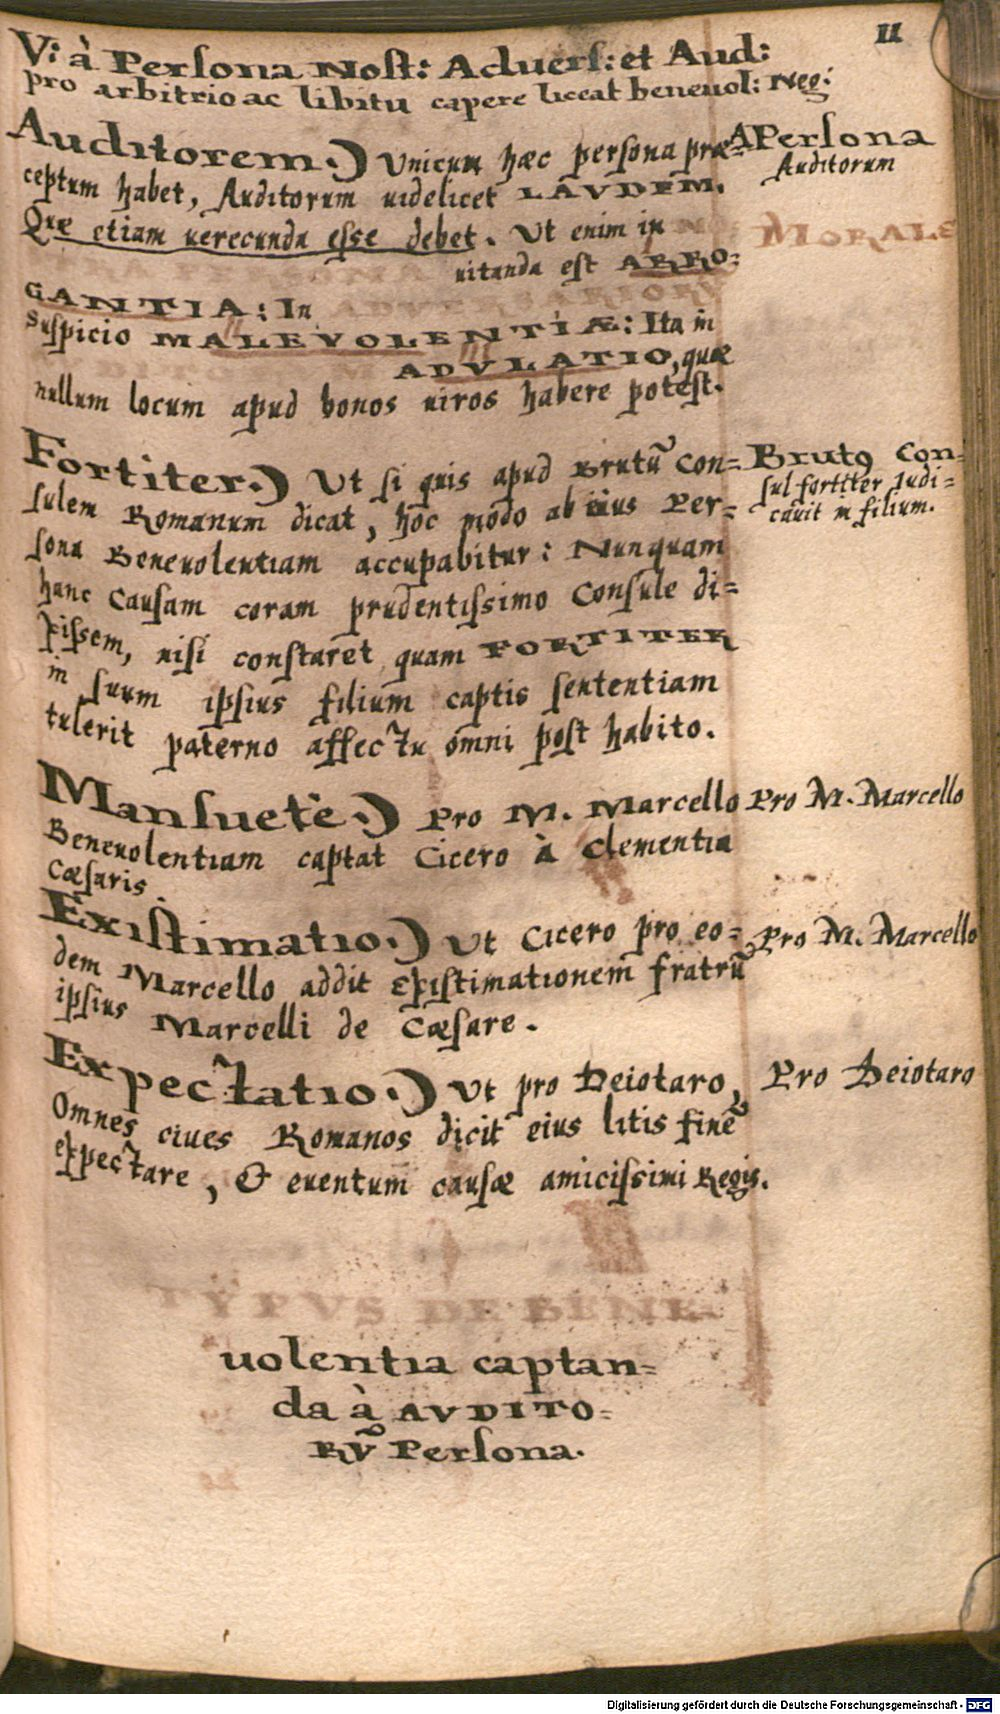 11
V: à Persona Nost: Advers: et Aud:
pro arbitrio ac libitu capere liceat benevol: Neg:
Auditorem.) Unicum hæc persona præ=
ceptum habet, Auditorum uidelicet LAVDEM.
Quæ etiam uerecunda esse debet. Ut enim in
uitanda est ARRO=
GANTIA: In
Suspicio MALEVOLENTIÆ: Ita in
ADVLATIO, quæ
nullum locum apud bonos uiros habere potest.
A Persona
Auditorum
MORALE
Fortiter.) Ut si quis apud Brutũ Con=
sulem Romanum dicat, hoc modo ab eius Per=
sona Beneuolentiam accupabitur: Nunquam
hanc Causam coram prudentissimo Consule di=
xissem, nisi constaret quam FORTITER
in suum ipsius filium captis sententiam
tulerit paterno affectu omni post habito.
Brutꝰ Con=
sul fortiter Judi=
cauit in filium.
Mansuetè.) Pro M. Marcello
Beneuolentiam captat Cicero à Clementia
Cæsaris.
Pro M. Marcello
Existimatio.) Ut Cicero pro eo=
dem Marcello addit Existimationem fratrũ
ipsius Marcelli de Cæsare.
Pro M. Marcello
Expectatio.) Ut pro Deiotaro,
Omnes ciues Romanos dicit eius litis finẽ
expectare, & euentum causæ amicissimi Regis.
Pro Deiotaro
TYPVS DE BENE=
uolentia captan=
da à AVDITO=
RṼ Persona.
Digitalisierung gefördert durch die Deutsche Forschungsgemeinschaft - DFG